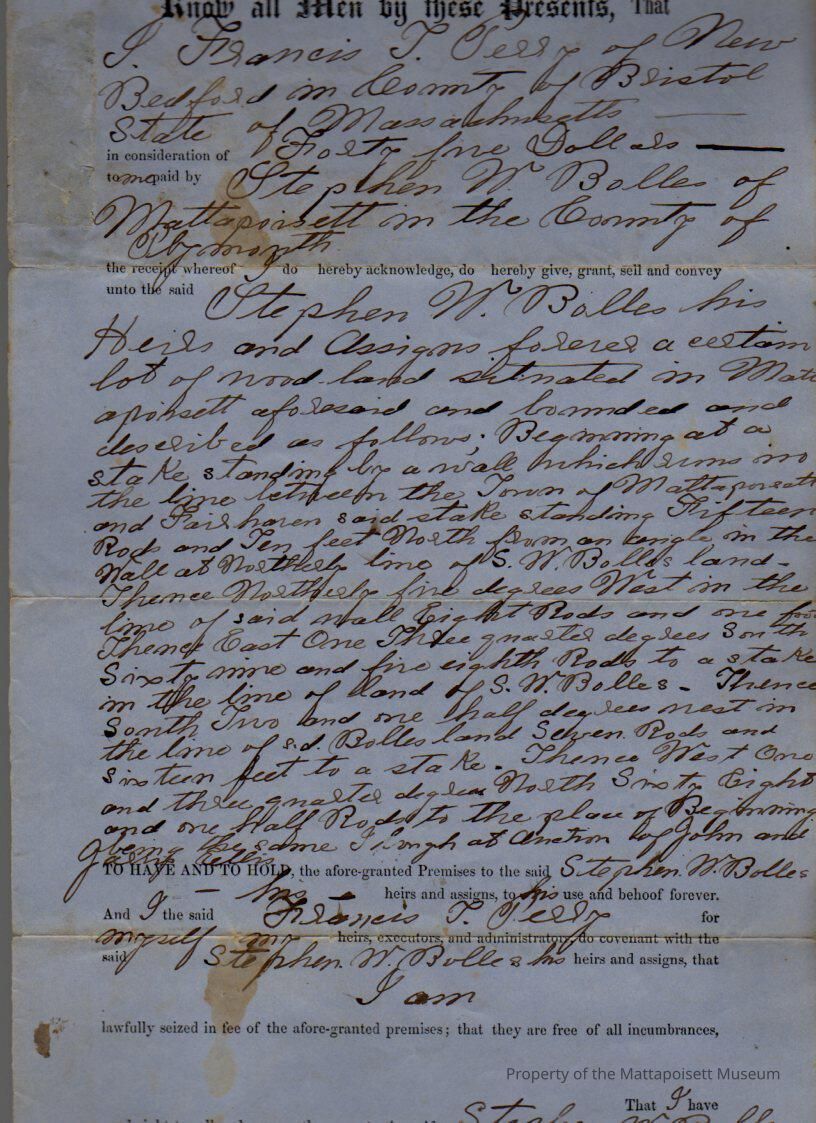 Know all Men by these Presents, That
I, Francis T. Perry of New
Bedford in County of Bristol
State of Massachusetts
in consideration of Forty five Dollars
to me paid by Stephen W. Bolles of
Mattapoisett in the County of
Plymouth
the receipt whereof I do hereby acknowledge, do hereby give, grant, sell and convey
unto the said Stephen W. Bolles his
Heirs and Assigns forever a certain
lot of wood-land situated in Matt
apoisett aforesaid and bounded and
described as follows; Beginning at a
stake standing by a wall which runs
the line between the Town of Mattapoisett
and Fairhaven said stake standing Fifteen
Rods and Ten feet North from an angle in the
Wall at Northerly line of S. W. Bolles land -
Thence Northerly five degrees West in the
line of said wall Eight Rods and one foot
Thence East One Three quarter degrees South
Sixty nine and five eighth Rods to a stake
in the line of land of S. W. Bolles - Thence
South Two and one half degrees west in
the line of s.d. Bolles land Seven Rods and
sixteen feet to a stake. Thence West One
and three quarter degrees North Sixty Eight
and one half Rods to the place of Beginning
being the same I bough at Auction of John and
TO HAVE AND TO HOLD, the afore-granted Premises to the said Stephen. W. Bolles
his heirs and assigns, to his use and behoof forever.
And I the said Francis T. Perry for
myself my heirs, executors, and administrators, do covenant with the
said Stephen. W. Bolles his heirs and assigns, that
I am
lawfully seized in fee of the afore-granted premises; that they are free of all incumbrances,
Property of the Mattapoisett Museum
That I have